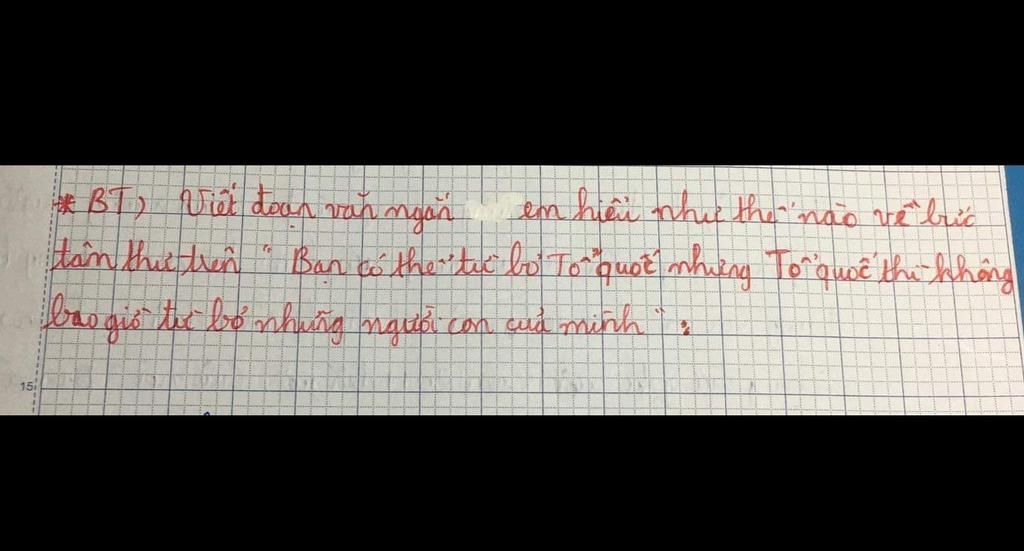 * BT) Viết đoạn văn ngắn em hiểu như thế nào về bức
tâm thư trên "Bạn có thể từ bỏ Tổ quốc nhưng Tổ quốc thì không
bao giờ từ bỏ những người con của mình":
15